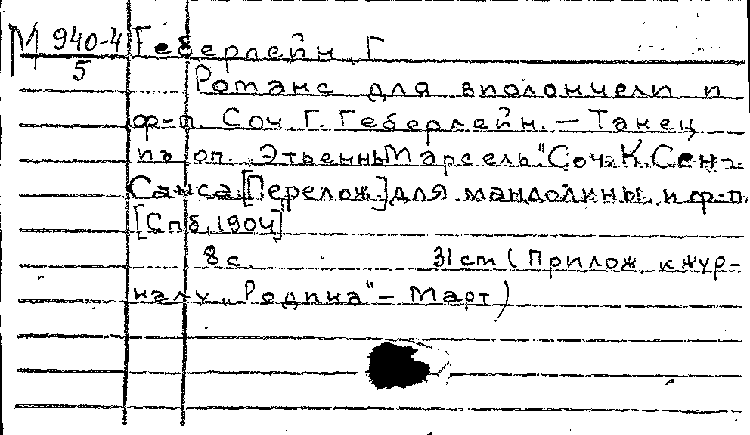 М 940-4/5 Геберлейн, Г.
Романс для виолончели и
ф-п. Соч. Г. Геберлейн. — Танец
из оп. „Этьенны Марсель" Соч. К. Сен-
Санса. [Перелож.] для мандолины и ф-п.
[Спб, 1904]
8 с. 31 cm (Прилож. к жур-
налу „Родина" – Март)